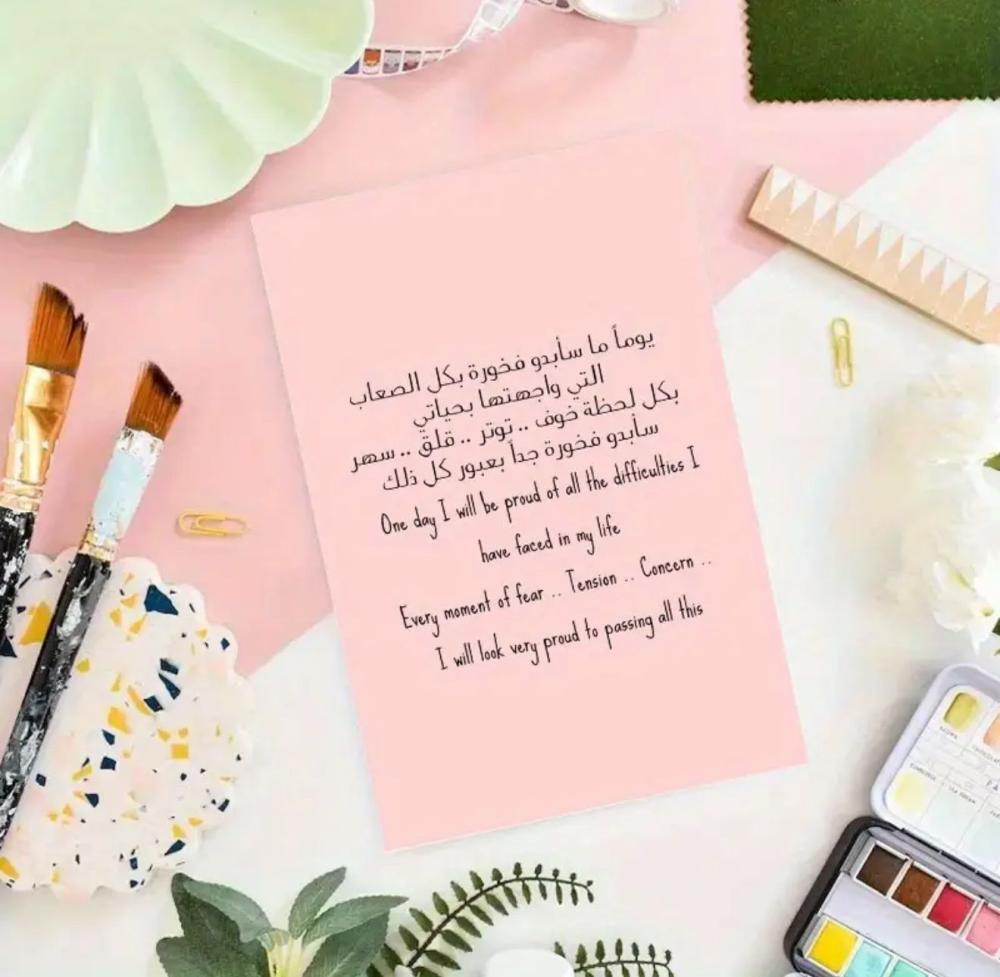 يوماً ما سأبدو فخورة بكل الصعاب
التي واجهتها بحياتي
بكل لحظة خوف .. توتر .. قلق .. سهر
سأبدو فخورة جداً بعبور كل ذلك
One day I will be proud of all the difficulties I
have faced in my life
Every moment of fear .. Tension .. Concern ..
I will look very proud to passing all this